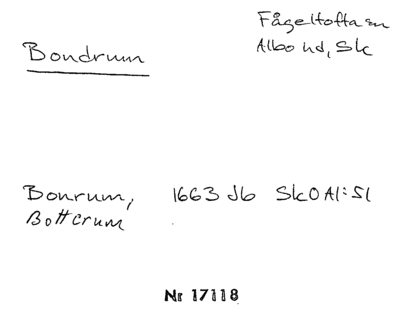 Fågeltofta sn
Albo hd, Sk
Bondrum
Bonrum, 1663 Jb SkOAl:51
Bottrum
Nr 17118